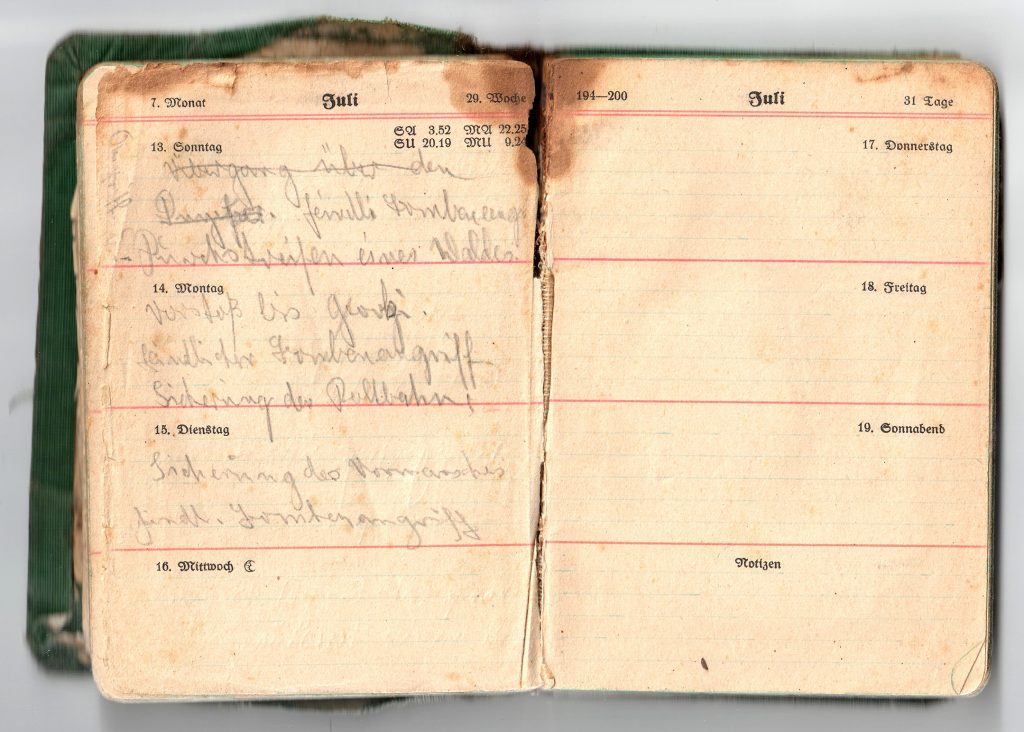 7. Monat Juli 29. Woche
SA 3.52 MA 22.25
13. Sonntag SU 20.19 MU 9.24
Übergang über den
feindl. Bombenang
Durchstreifen eines Waldes.
14. Montag
Vorstoß bis
feindlicher Bombenangriff.
Sicherung der Rollbahn!
15. Dienstag
Sicherung des Vormarsches
feindl. Bombenangriff
16. Mittwoch ☾
194—200 Juli 31 Tage
17. Donnerstag
18. Freitag
19. Sonnabend
Notizen